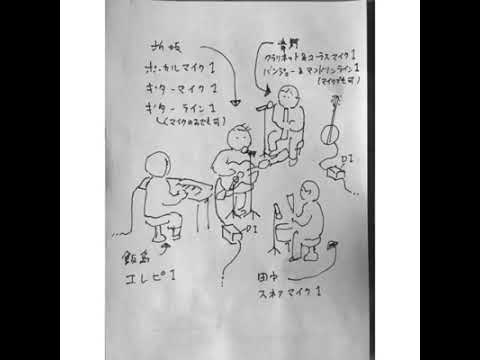 折坂
ボーカルマイク1
ギターマイク1
ギターライン1
(マイクのみでも可)
青野
クラリネット&コーラスマイク1
バンジョー&マンドリンライン1
(マイクでも可)
DI
DI
飯島
エレピ1
田中
スネアマイク1